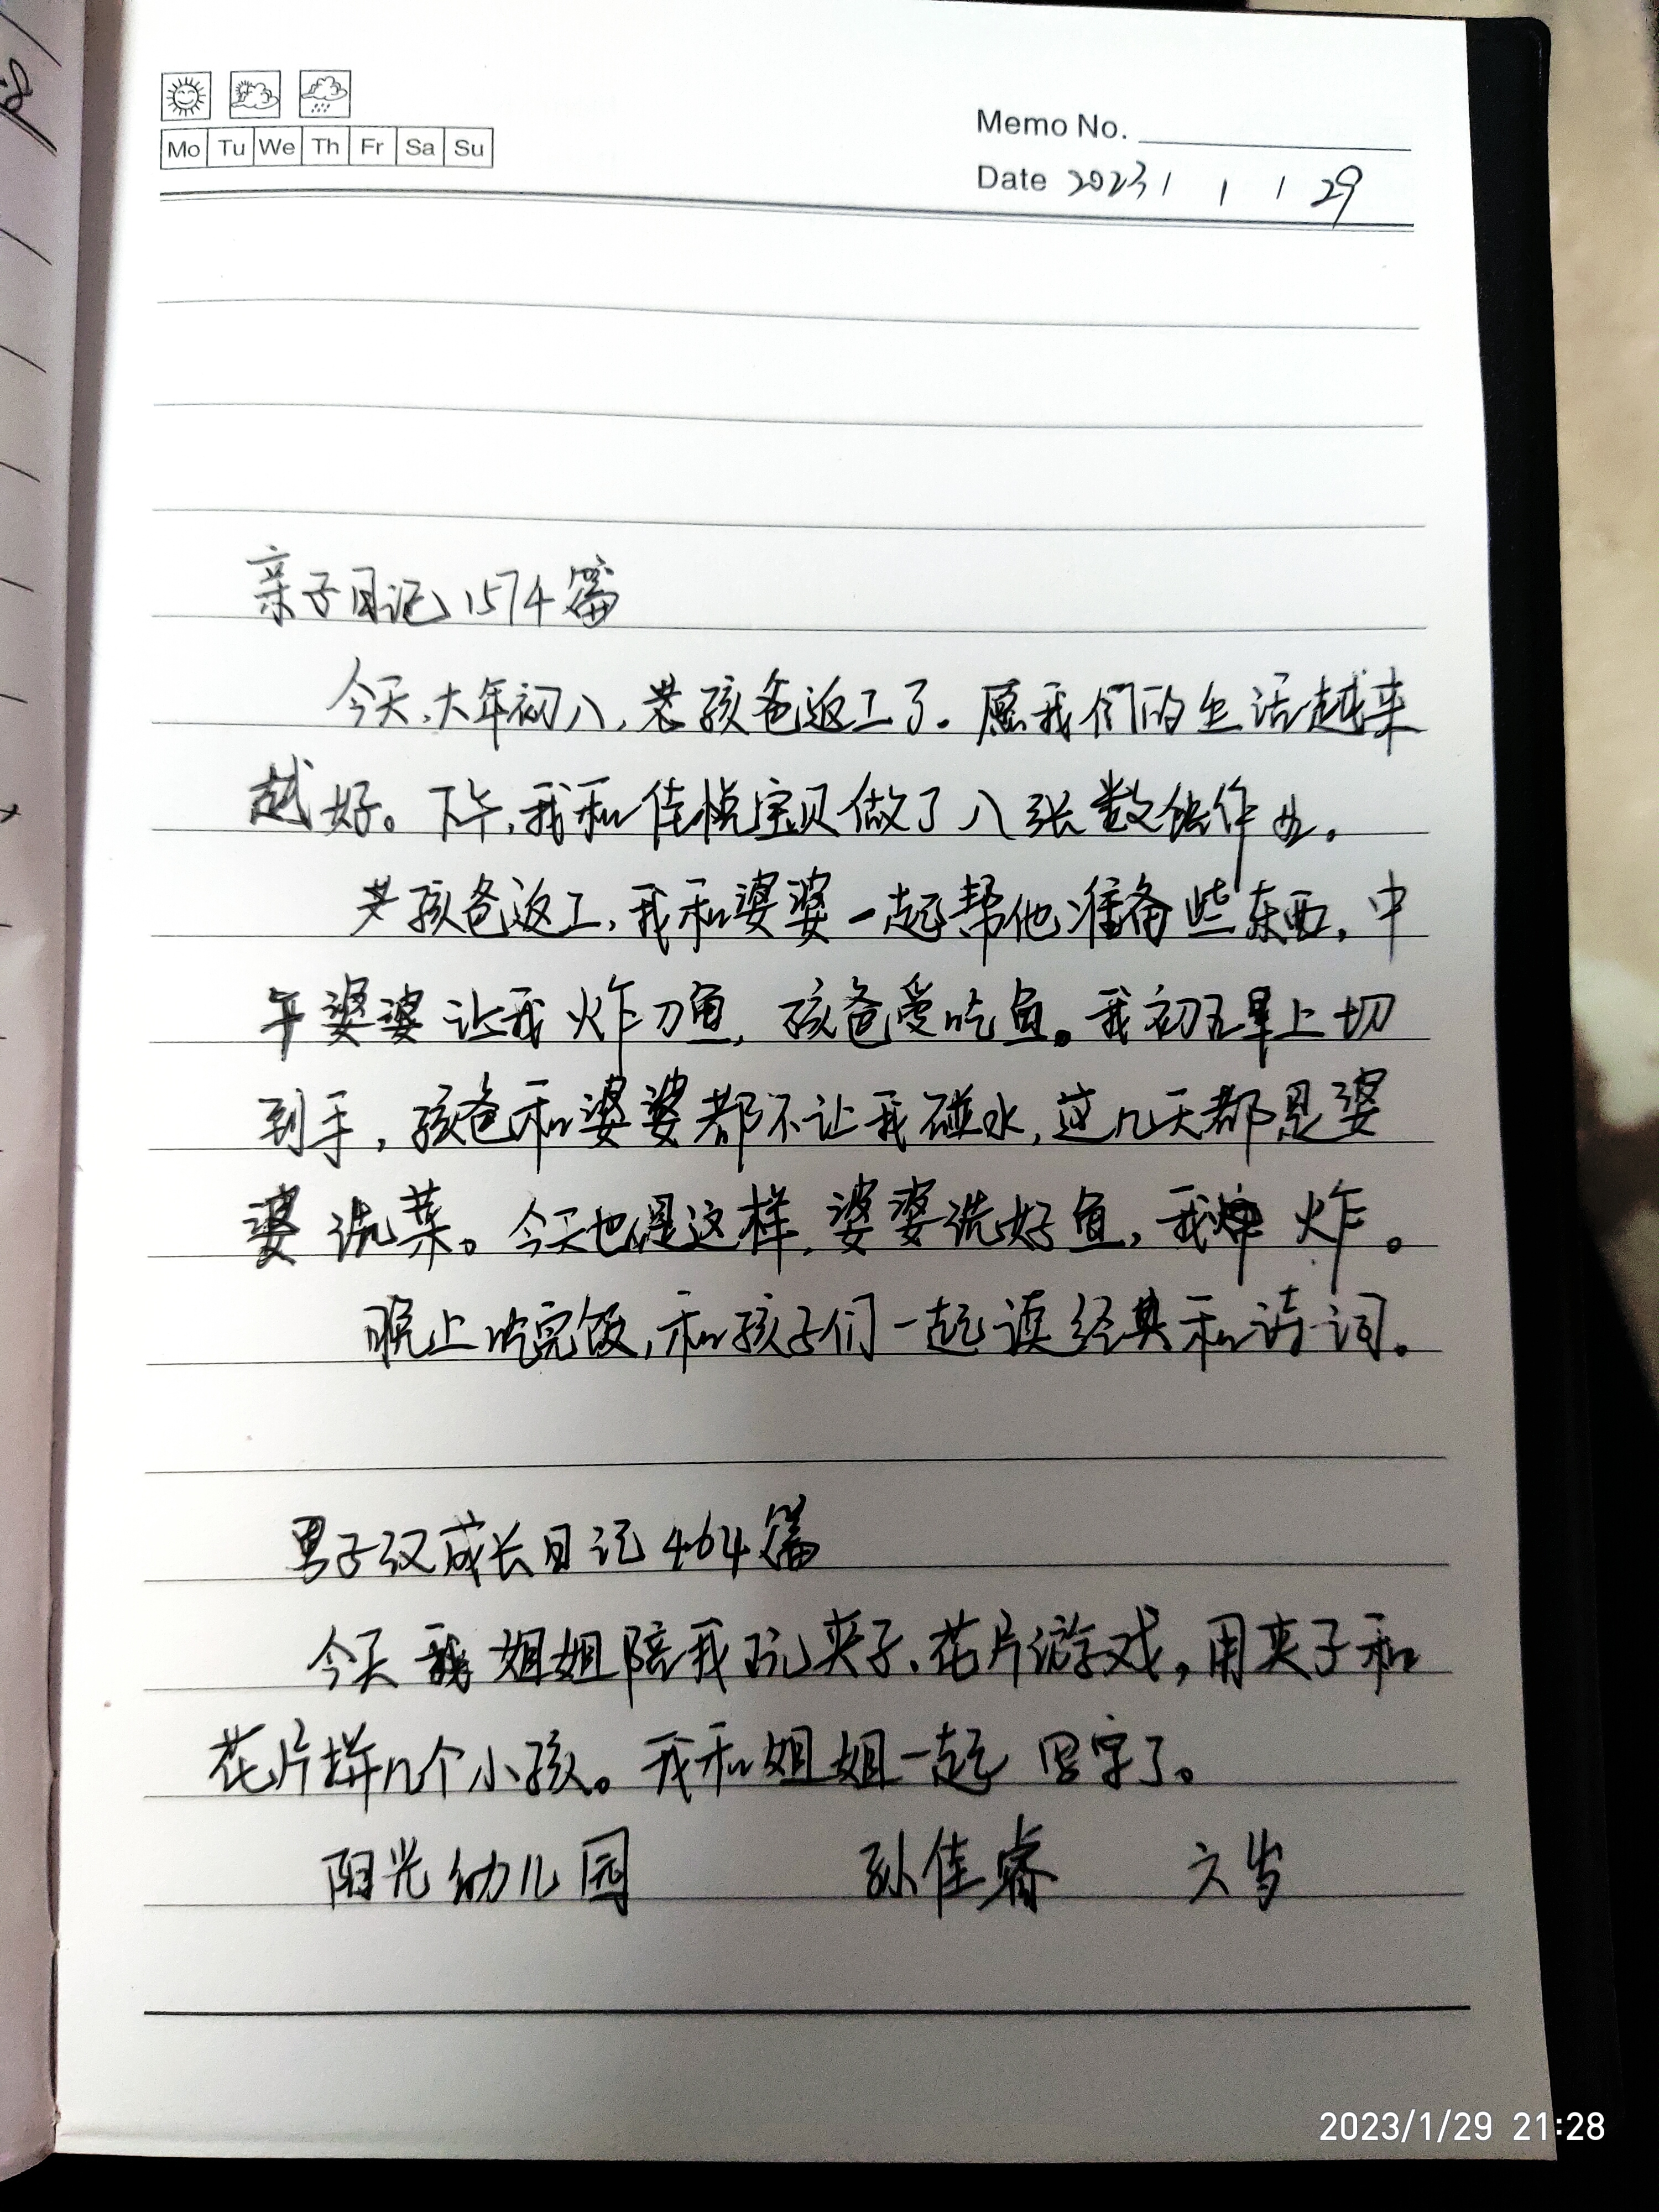 Mo Tu We Th Fr Sa Su
Memo No.
Date 2023 / 1 / 29
亲子日记1574篇
今天,大年初八,老孩爸返工了。愿我们的生活越来
越好。下午,我和佳悦宝贝做了八张数学作业。
孩爸返工,我和婆婆一起帮他准备些东西,中
午婆婆让我炸刀鱼,孩爸爱吃鱼。我初五早上切
到手,孩爸和婆婆都不让我碰水,这几天都是婆
婆洗菜。今天也是这样,婆婆洗好鱼,我炸。
晚上吃完饭,和孩子们一起读经典和诗词。
男子汉成长日记464篇
今天姐姐陪我玩夹子、花片游戏,用夹子和
花片拼几个小孩。我和姐姐一起写字了。
阳光幼儿园 孙佳睿 六岁
2023/1/29 21:28